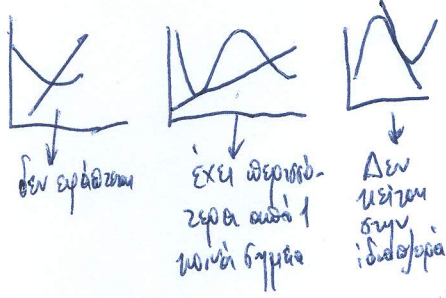 δεν εφάπτεται
έχει περισσό-
τερα από 1
κοινά σημεία
Δεν
κείται
στην
ίδια πλευρά